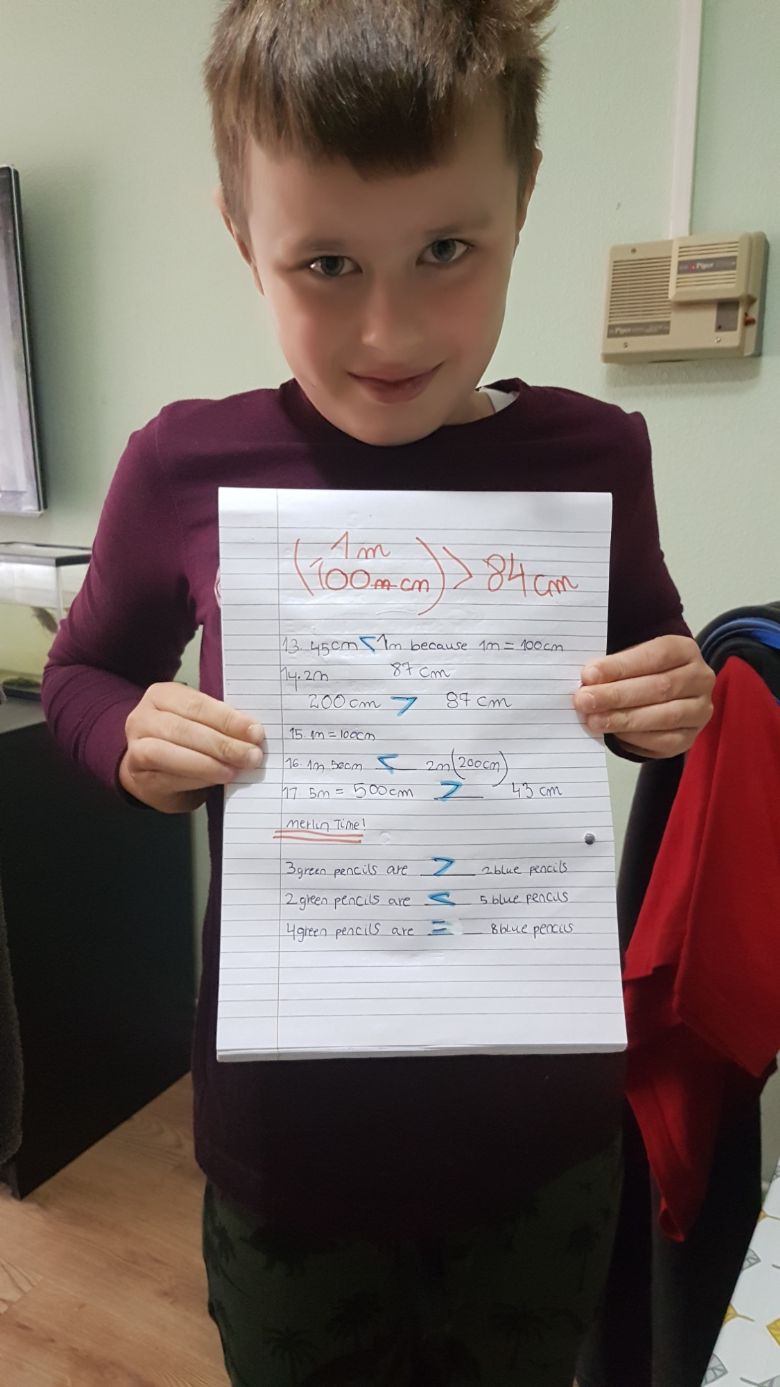 1m
(100m cm) > 84 cm
13. 45cm < 1m because 1m = 100cm
14. 2m 87 cm
200 cm > 87 cm
15. 1m = 100cm
16. 1m 50cm < 2m (200cm)
17. 5m = 500cm > 43 cm
Merlin Time!
3 green pencils are > 2 blue pencils
2 green pencils are < 5 blue pencils
4 green pencils are = 8 blue pencils
Piper
Piper